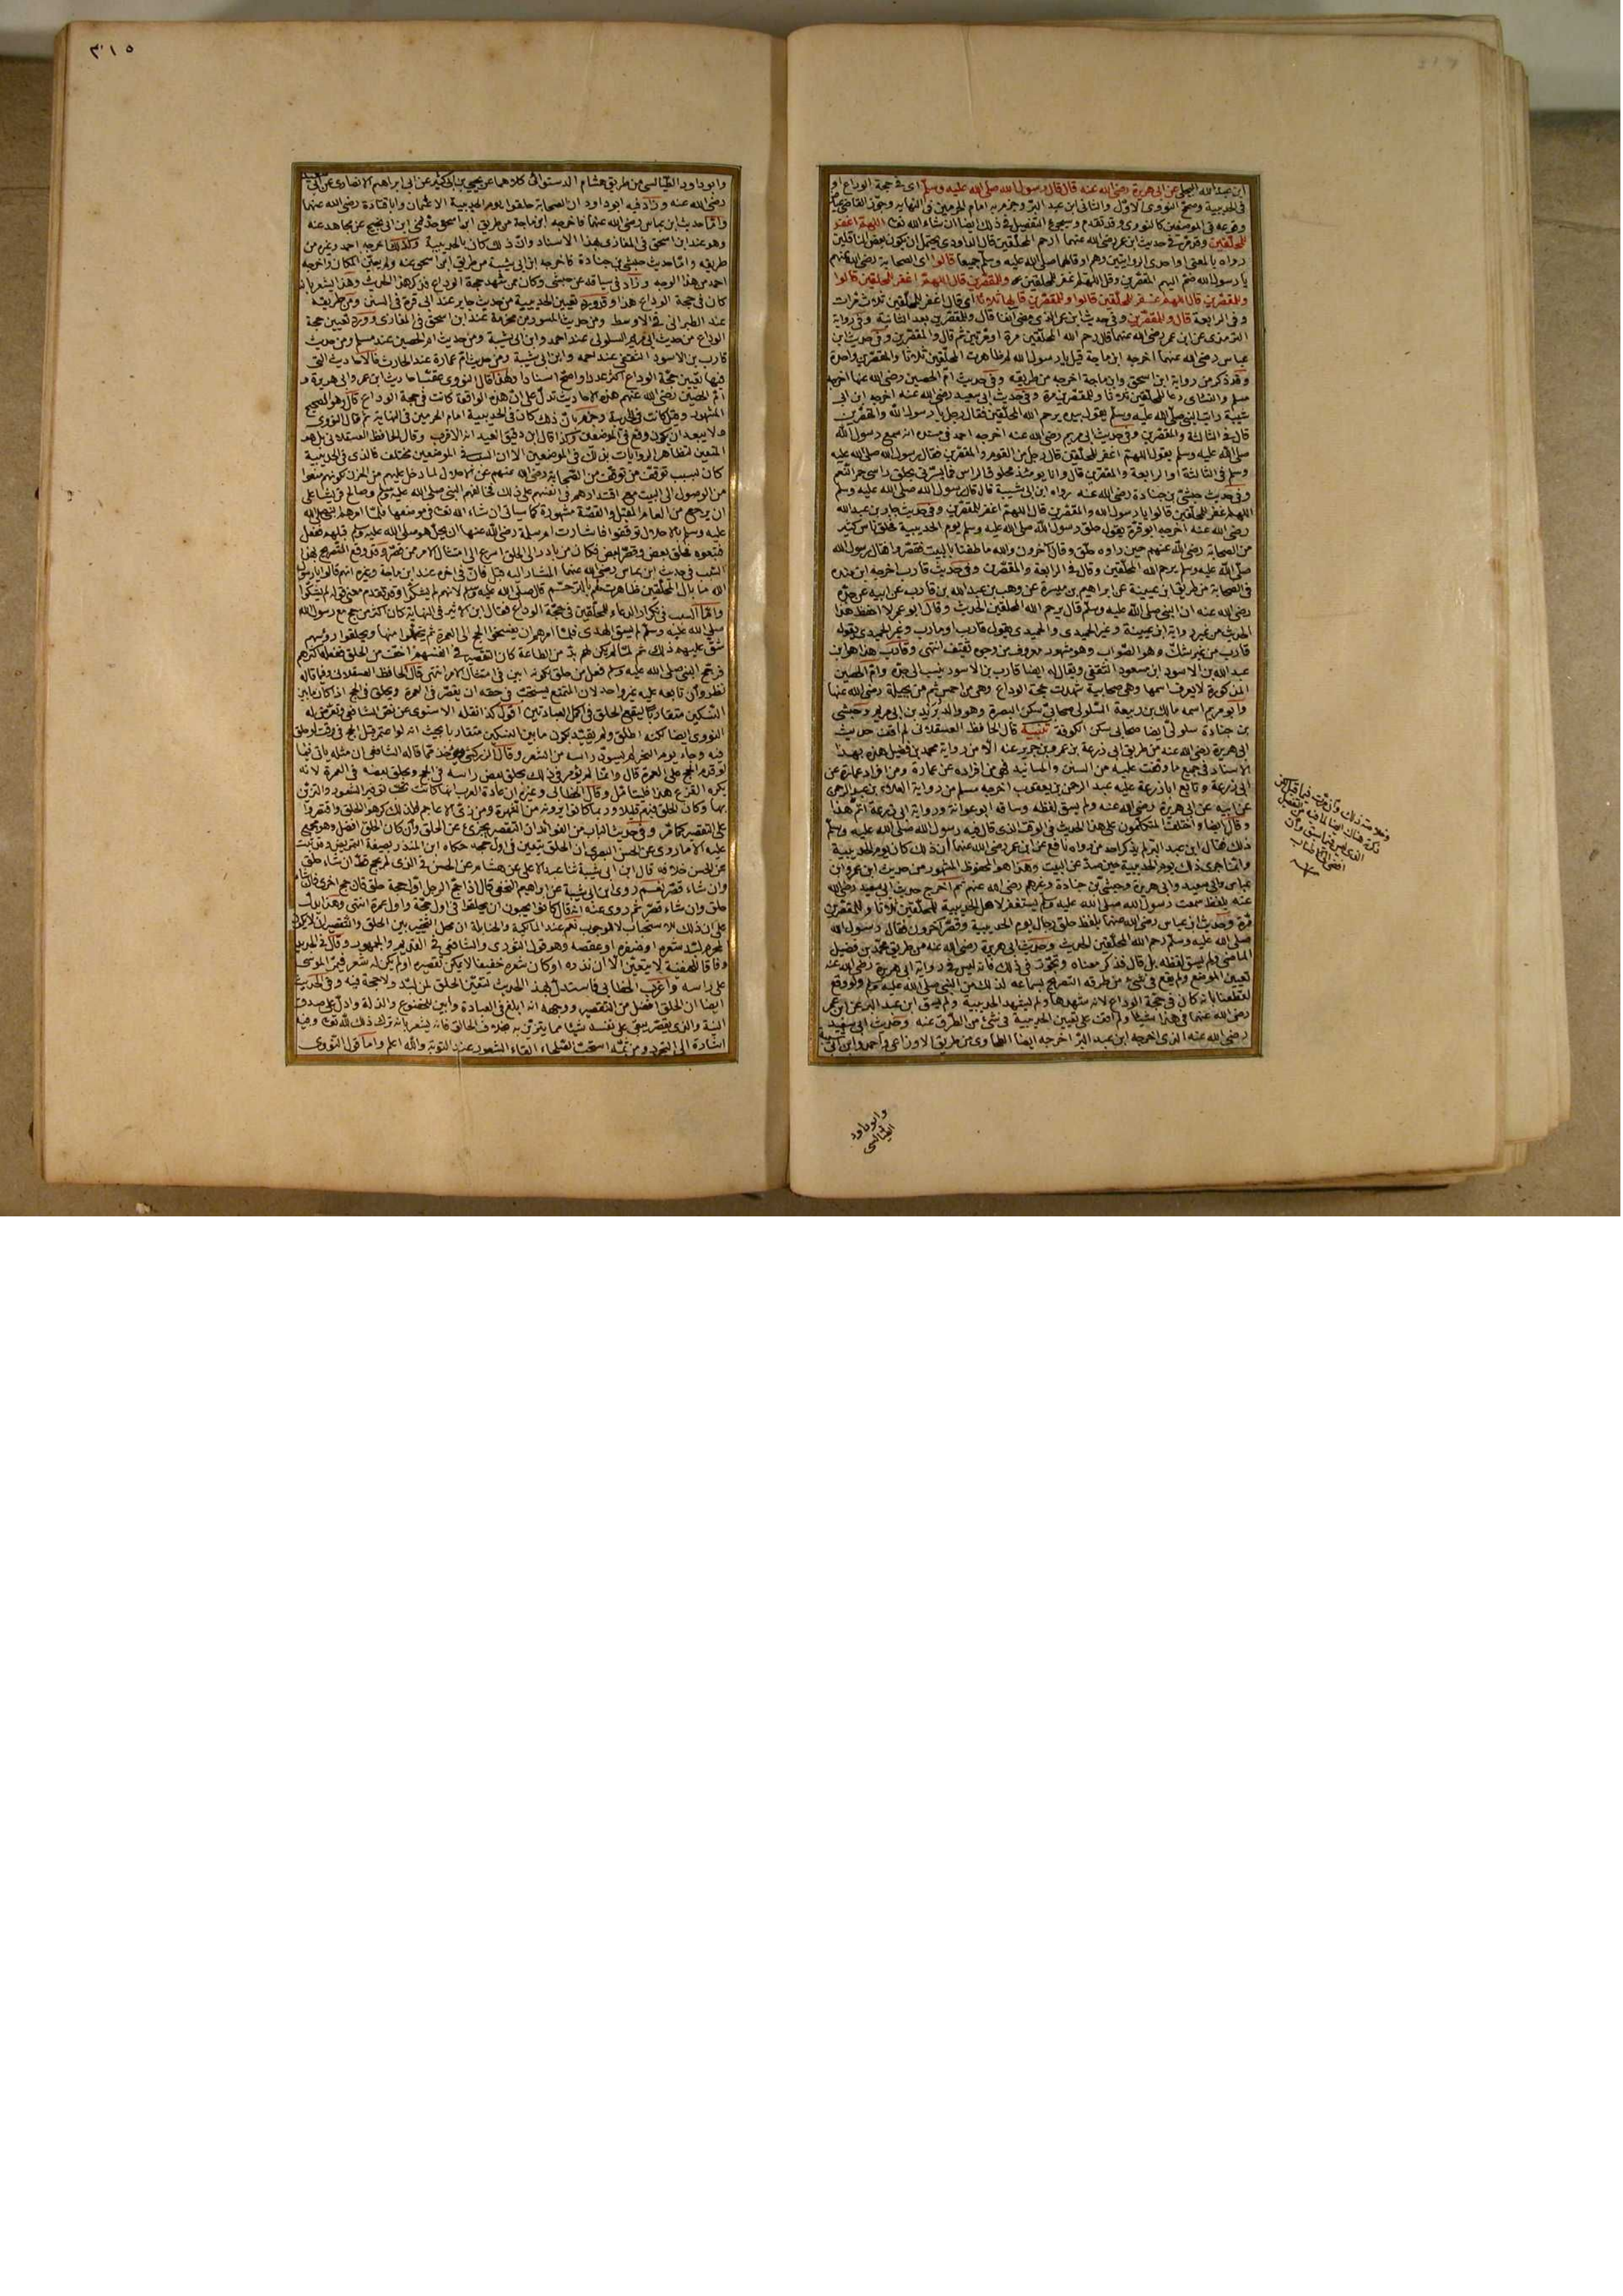 ابن عبد الله البجلي عن ابي هريرة رضي الله عنه قال قال رسول الله صلى الله عليه وسلم اي في حجة الوداع او
في الحديبية وصحح النووي الاول والثاني ابن عبد البر وجزم به امام الحرمين في النهاية وجوز القاضي عياض
وقوعه في الموضعين كالنووي وقد تقدم وسيجيئ التفصيل في ذلك ايضا ان شاء الله تعالى اللهم اغفر
للمحلقين وقد مر في حديث ابن عمر رضي الله عنهما ارحم المحلقين قال الداودي يحتمل ان يكون بعض الناقلين
رواه بالمعنى او احدى الروايتين وهم او قالهما صلى الله عليه وسلم جميعا قالوا اي الصحابة رضي الله عنهم
يا رسول الله ضم اليهم المقصرين وقل اللهم اغفر للمحلقين والمقصرين قال اللهم اغفر للمحلقين قالوا
وللمقصرين قال اللهم اغفر للمحلقين قالوا وللمقصرين قالها ثلاثا اي قال اغفر للمحلقين ثلاث مرات
وفي الرابعة قال وللمقصرين وفي حديث ابن عمر الذي مضى انفا قال وللمقصرين بعد الثانية وفي رواية
الترمذي عن ابن عمر رضي الله عنهما قال رحم الله المحلقين مرة او مرتين ثم قال والمقصرين وفي حديث ابن
عباس رضي الله عنهما اخرجه ابن ماجة قيل يا رسول الله لم ظاهرت المحلقين ثلاثا والمقصرين واحدة
وقد ذكر من رواية ابن اسحق وابن ماجة اخرجه من طريقه وفي حديث ام الحصين رضي الله عنها اخرجه
مسلم والنسائي دعا للمحلقين ثلاثا وللمقصرين مرة وفي حديث ابي سعيد رضي الله عنه اخرجه ابن ابي
شيبة رايت النبي صلى الله عليه وسلم يقول بيده يرحم الله المحلقين فقال رجل يا رسول الله والمقصرين
قال في الثالثة والمقصرين وفي حديث ابي مريم رضي الله عنه اخرجه احمد في مسنده انه سمع رسول الله
صلى الله عليه وسلم يقول اللهم اغفر للمحلقين قال رجل من القوم والمقصرين فقال رسول الله صلى الله عليه
وسلم في الثالثة او الرابعة والمقصرين قال وانا يومئذ محلوق الراس فما يسرني بحلق راسي حمر النعم
وفي حديث حبشي بن جنادة رضي الله عنه رواه ابن ابي شيبة قال قال رسول الله صلى الله عليه وسلم
اللهم اغفر للمحلقين قالوا يا رسول الله والمقصرين قال اللهم اغفر للمقصرين وفي حديث جابر بن عبد الله
رضي الله عنه اخرجه ابو قرة يقول حلق رسول الله صلى الله عليه وسلم يوم الحديبية فحلق ناس كثير
من الصحابة رضي الله عنهم حين راوه حلق وقال آخرون والله ما طفنا بالبيت فقصروا فقال رسول الله
صلى الله عليه وسلم يرحم الله المحلقين وقال في الرابعة والمقصرين وفي حديث قارب اخرجه ابن منده
في الصحابة من طريق ابن عيينة عن ابراهيم بن ميسرة عن وهب بن عبد الله بن قارب عن ابيه عن جده
رضي الله عنه ان النبي صلى الله عليه وسلم قال يرحم الله المحلقين الحديث وقال ابو عمر لا احفظ هذا
الحديث من غير رواية ابن عيينة وغير الحميدي والحميدي يقول قارب او مارب وغير الحميدي يقوله
قارب من غير شك وهو الصواب وهو مشهور معروف من وجوه ثقيف انتهى وقارب هذا هو ابن
عبد الله بن الاسود ابن مسعود الثقفي ويقال له ايضا قارب بن الاسود ينسب الى جده وام الحصين
المذكورة لا يعرف اسمها وهي صحابية شهدت حجة الوداع وهي من احمس ثم من بجيلة رضي الله عنها
وابو مريم اسمه مالك بن ربيعة السلولي صحابي سكن البصرة وهو والد بريد بن ابي مريم وحبشي
بن جنادة سلولي ايضا صحابي سكن الكوفة تنبيه قال الحافظ العسقلاني لم اقف حديث
ابي هريرة رضي الله عنه من طريق ابي زرعة بن عمرو بن جرير عنه الا من رواية محمد بن فضيل هذه بهذا
الاسناد في جميع ما وقفت عليه من السنن والمسانيد فهي من افراده عن عمارة ومن افراد عمارة عن
ابي زرعة وتابع ابا زرعة عليه عبد الرحمن بن يعقوب اخرجه مسلم من رواية العلاء بن عبد الرحمن
عن ابيه عن ابي هريرة رضي الله عنه ولم يسق لفظه وساقه ابو عوانة ورواية ابي زرعة اتم هذا
وقال ايضا واختلف المتكلمون على هذا الحديث في الوقت الذي قال فيه رسول الله صلى الله عليه وسلم
ذلك فقال ابن عبد البر لم يذكر احد من رواه نافع عن ابن عمر رضي الله عنهما ان ذلك كان يوم الحديبية
وانما جرى ذلك يوم الحديبية حين صد عن البيت وهذا هو المحفوظ المشهور من حديث ابن عمر وابن
عباس وابي سعيد وابي هريرة وحبشي بن جنادة وغيرهم رضي الله عنهم ثم اخرج حديث ابي سعيد رضي الله
عنه بلفظ سمعت رسول الله صلى الله عليه وسلم يستغفر لاهل الحديبية للمحلقين ثلاثا وللمقصرين
مرة وحديث ابن عباس رضي الله عنهما بلفظ حلق رجال يوم الحديبية وقصر آخرون فقال رسول الله
صلى الله عليه وسلم رحم الله المحلقين الحديث وحديث ابي هريرة رضي الله عنه من طريق محمد بن فضيل
الماضي ولم يسق لفظه بل قال فذكر معناه وتجوز في ذلك فانه ليس في رواية ابي هريرة رضي الله عنه
تعيين الموضع ولم يقع في شيء من طرقه التصريح بسماعه لذلك من النبي صلى الله عليه وسلم ولو وقع
لقطعنا بانه كان في حجة الوداع لانه شهدها ولم يشهد الحديبية ولم يسق ابن عبد البر عن ابن عمر
رضي الله عنهما في هذا شيئا ولم اقف على تعيين الحديبية في شيء من الطرق عنه وحديث ابي سعيد
رضي الله عنه الذي اخرجه ابن عبد البر اخرجه ايضا الطحاوي من طريق الاوزاعي واحمد وابن ابي شيبة
وابو داود
الطيالسي
٣١٥
وابو داود الطيالسي من طريق هشام الدستوائي كلاهما عن يحيى بن ابي كثير عن ابي ابراهيم الانصاري عن ابي سعيد
رضي الله عنه وزاد فيه ابو داود ان الصحابة حلقوا يوم الحديبية الا عثمان وابا قتادة رضي الله عنهما
واما حديث ابن عباس رضي الله عنهما فاخرجه ابن ماجة من طريق ابن اسحق حدثني ابن ابي نجيح عن مجاهد عنه
وهو عند ابن اسحق في المغازي بهذا الاسناد وان ذلك كان بالحديبية وكذلك اخرجه احمد وغيره من
طريقه واما حديث حبشي بن جنادة فاخرجه ابن ابي شيبة من طريق ابي اسحق عنه ولم يعين المكان واخرجه
احمد من هذا الوجه وزاد في سياقه عن حبشي وكان ممن شهد حجة الوداع فذكر هذا الحديث وهذا يشعر بانه
كان في حجة الوداع هذا وقد ورد تعيين الحديبية من حديث جابر عند ابي قرة في السنن ومن طريقه
عند الطبراني في الاوسط ومن حديث المسور بن مخرمة عند ابن اسحق في المغازي وورد تعيين حجة
الوداع من حديث ابي مريم السلولي عند احمد وابن ابي شيبة ومن حديث ام الحصين عند مسلم ومن حديث
قارب بن الاسود الثقفي عند احمد وابن ابي شيبة ومن حديث ام عمارة عند الحارث فالاحاديث التي
فيها تعيين حجة الوداع اكثر عددا واصح اسنادا ولهذا قال النووي عقب احاديث ابن عمر وابي هريرة و
ام الحصين رضي الله عنهم هذه الاحاديث تدل على ان هذه الواقعة كانت في حجة الوداع قال وهو الصحيح
المشهور وقيل كانت في الحديبية وجزم بان ذلك كان في الحديبية امام الحرمين في النهاية ثم قال النووي
ولا يبعد ان يكون وقع في الموضعين وكذا قال ابن دقيق العيد انه الاقرب وقال الحافظ العسقلاني بل هو
المتعين لتظاهر الروايات بذلك في الموضعين الا ان السبب في الموضعين مختلف فالذي في الحديبية
كان لسبب توقف من توقف من الصحابة رضي الله عنهم عن الاحلال لما دخل عليهم من الحزن لكونهم منعوا
من الوصول الى البيت مع اقتدارهم في انفسهم على ذلك فخالفهم النبي صلى الله عليه وسلم وصالح قريشا على
ان يرجع من العام المقبل والقصة مشهورة كما سياتي ان شاء الله تعالى في موضعها فلما امرهم النبي صلى الله
عليه وسلم بالاحلال توقفوا فاشارت ام سلمة رضي الله عنها ان يحل هو صلى الله عليه وسلم قبلهم ففعل
فتبعوه فحلق بعض وقصر بعض فكان من بادر الى الحلق اسرع الى امتثال الامر ممن قصر وقد وقع التصريح بهذا
السبب في حديث ابن عباس رضي الله عنهما المشار اليه قبل فان في اخره عند ابن ماجة وغيره انهم قالوا يا رسول
الله ما بال المحلقين ظاهرت لهم بالترحم قال صلى الله عليه وسلم لانهم لم يشكوا وقد تقدم معنى قوله لم يشكوا
واما السبب في تكرار الدعاء للمحلقين في حجة الوداع فقال ابن الاثير في النهاية كان اكثر من حج مع رسول الله
صلى الله عليه وسلم لم يسق الهدي فلما امرهم ان يفسخوا الحج الى العمرة ثم يتحللوا منها ويحلقوا رؤسهم
شق عليهم ذلك ثم لما لم يكن لهم بد من الطاعة كان التقصير في انفسهم اخف من الحلق ففعله اكثرهم
فرجح النبي صلى الله عليه وسلم فعل من حلق لكونه ابين في امتثال الامر انتهى قال الحافظ العسقلاني وفيما قاله
نظر وان تابعه عليه غير واحد لان المتمتع يستحب في حقه ان يقصر في العمرة ويحلق في الحج اذا كان ما بين
النسكين متقاربا ليقع الحلق في اكمل العبادتين اقول كذا نقله الاسنوي عن نص الشافعي وتعرض له
النووي ايضا لكنه اطلق ولم يقيده بكون ما بين النسكين متقاربا بحيث انه لو اعتمر قبل الحج في وقت لو حلق
فيه وجاء يوم النحر لم يسود راسه من الشعر وقال الزركشي ويؤخذ مما قاله الشافعي ان مثله ياتي فيما
لو قدم الحج على العمرة قال وانما لم يؤمر في ذلك بحلق بعض راسه في الحج وبحلق بعضه في العمرة لانه
يكره القزع هذا فليتامل وقال الخطابي وغيره ان عادة العرب انها كانت تحب توفير الشعور والتزين
بها وكان الحلق فيهم قليلا وربما كانوا يرونه من الشهرة ومن زي الاعاجم فلذلك كرهوا الحلق واقتصروا
على التقصير كما مر وفي حديث الباب من الفوائد ان التقصير يجزئ عن الحلق وان كان الحلق افضل وهو مجمع
عليه الا ما روي عن الحسن البصري ان الحلق يتعين في اول حجه حكاه ابن المنذر بصيغة التمريض وقد ثبت
عن الحسن خلافه قال ابن ابي شيبة ثنا عبد الاعلى عن هشام عن الحسن في الذي لم يحج قط ان شاء حلق
وان شاء قصر نعم روى ابن ابي شيبة عن ابراهيم النخعي قال اذا حج الرجل اول حجة حلق فان حج اخرى فان شاء
حلق وان شاء قصر ثم روى عنه انه قال كانوا يحبون ان يحلقوا في اول حجة واول عمرة انتهى وهذا يدل
على ان ذلك للاستحباب لا للوجوب نعم عند المالكية والحنابلة ان محل التخيير بين الحلق والتقصير ان لا يكون
المحرم لبد شعره او ضفره او عقصه وهو قول الثوري والشافعي في القديم والجمهور وقال في الجديد
وفاقا للحنفية لا يتعين الا ان نذره او كان شعره خفيفا لا يمكن تقصيره او لم يكن له شعر فيمر الموسى
على راسه واغرب الخطابي فاستدل بهذا الحديث لتعين الحلق لمن لبد ولا حجة فيه وفي الحديث
ايضا ان الحلق افضل من التقصير ووجهه انه ابلغ في العبادة وابين للخضوع والذلة وادل على صدق
النية والذي يقصر يبقي على نفسه شيئا مما يتزين به بخلاف الحالق فانه يشعر بانه ترك ذلك لله تعالى وفيه
اشارة الى التجرد ومن ثمه استحب الصلحاء القاء الشعور عند التوبة والله اعلم واما قول النووي